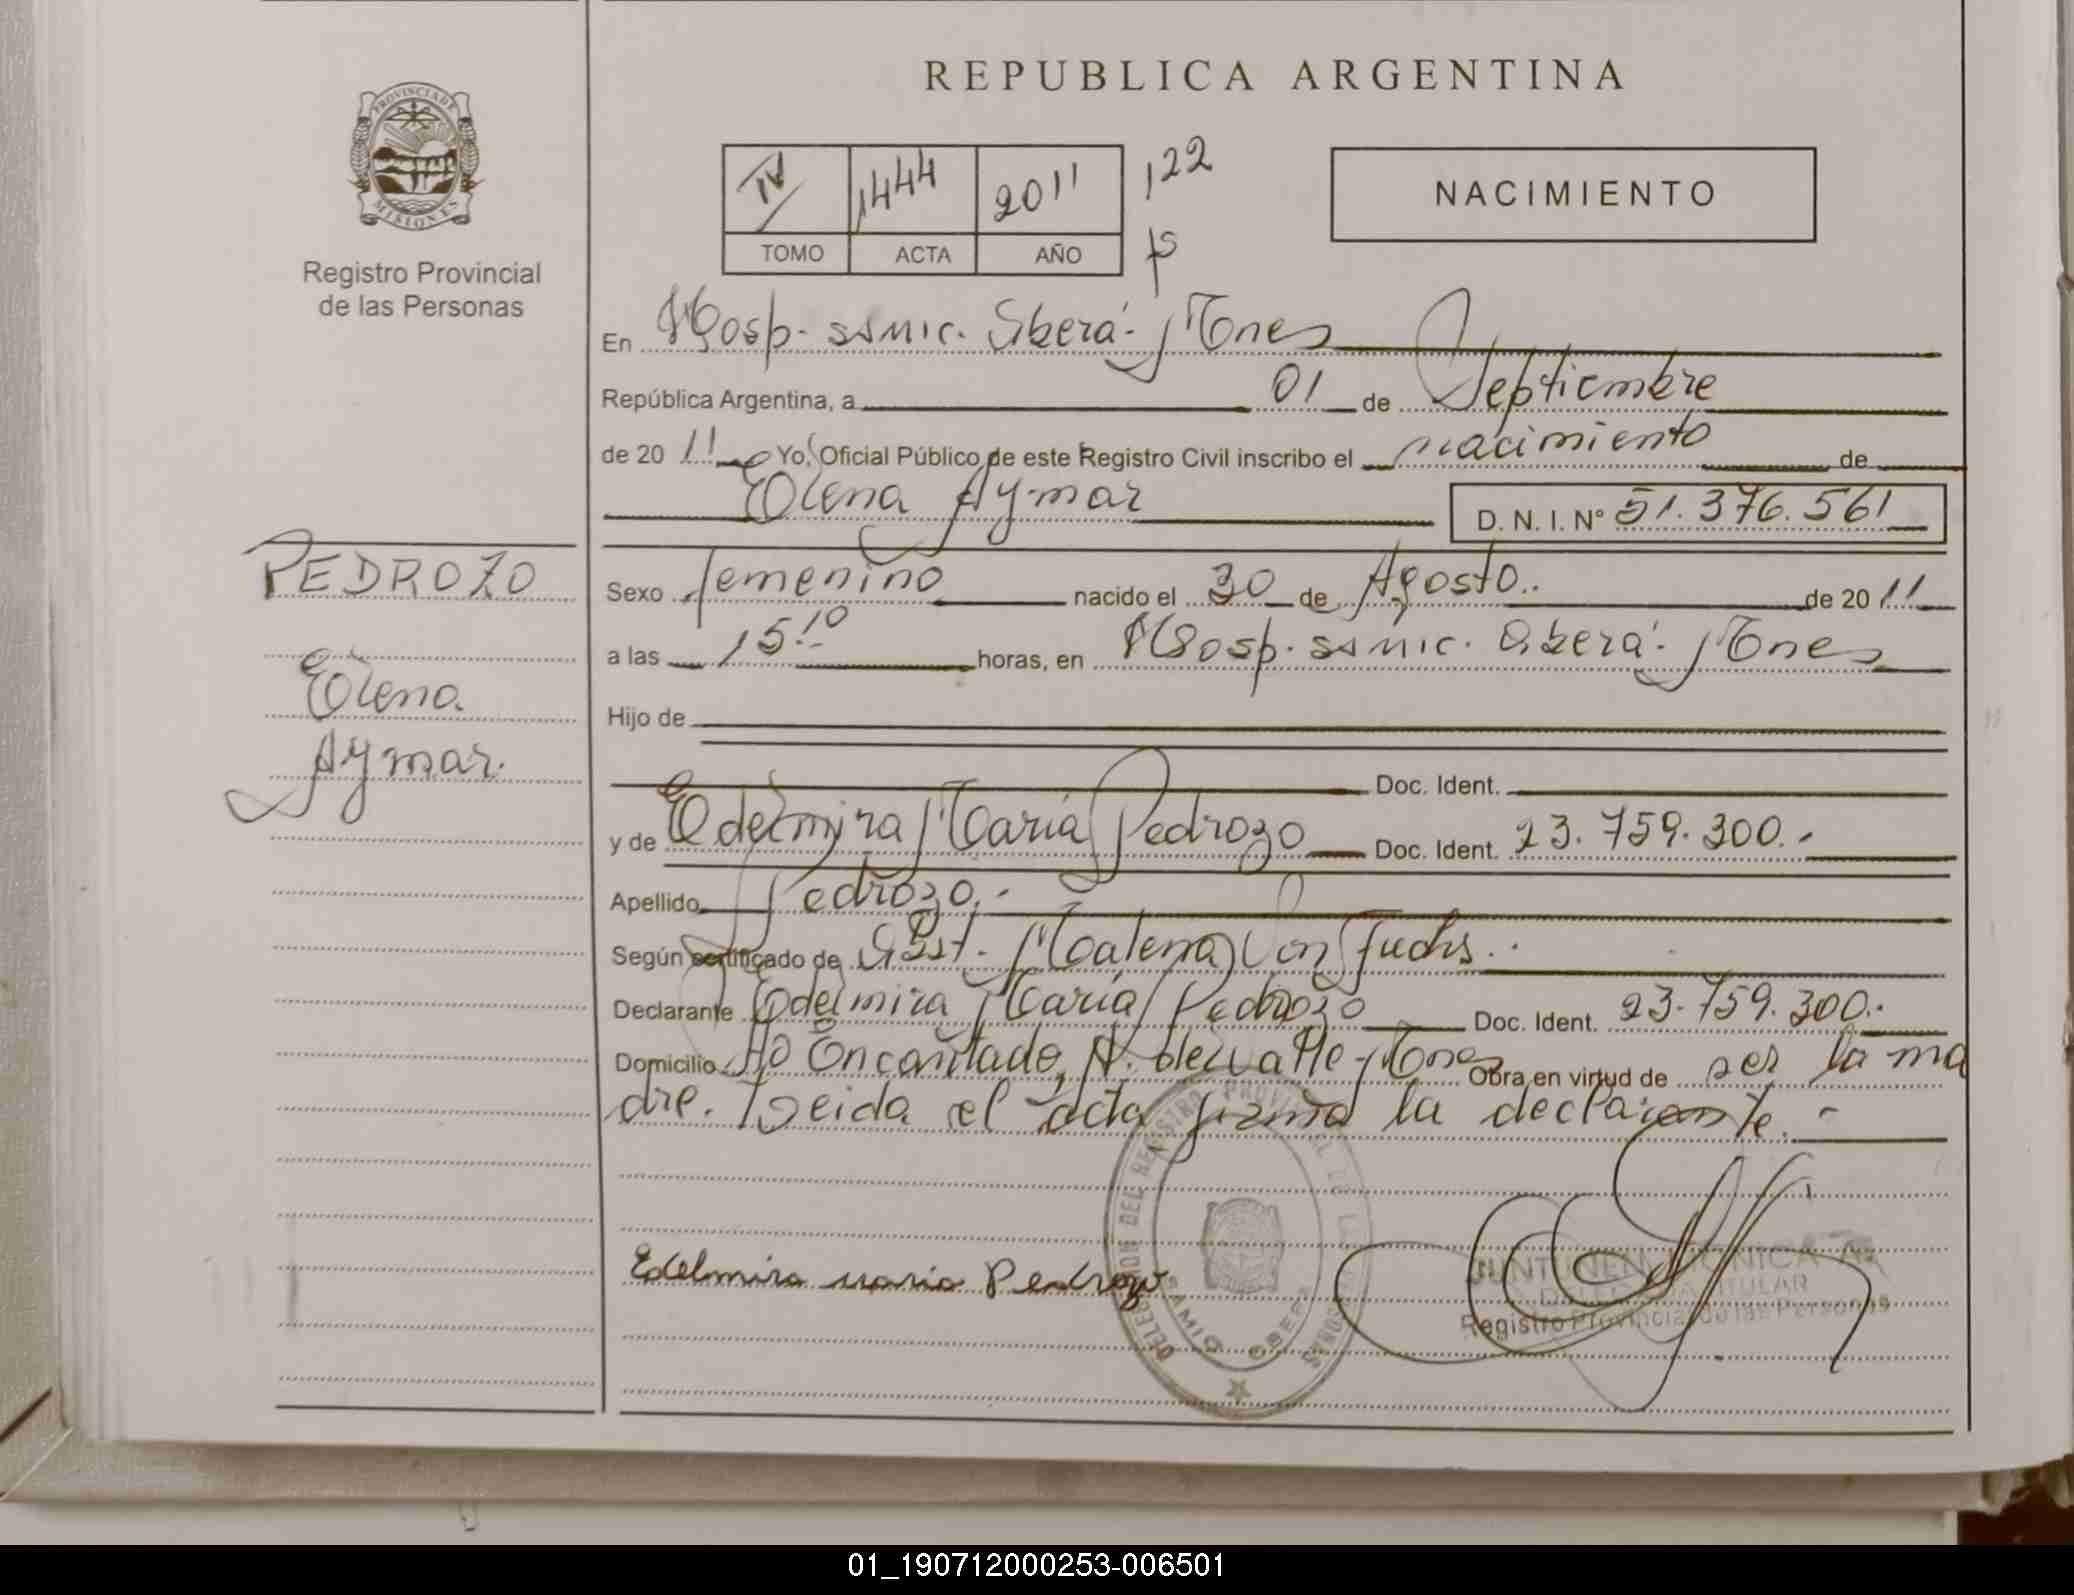 REPUBLICA ARGENTINA
PROVINCIA DE
MISIONES
Registro Provincial
de las Personas
IV 1444 2011 122
TOMO ACTA AÑO
NACIMIENTO
En Hosp. ssmic. Oberá - Mnes
República Argentina, a 01 de Septiembre
de 20 11 Yo, Oficial Público de este Registro Civil inscribo el nacimiento de
Elena Aymar D. N. I. N° 51.376.561
PEDROZO
Elena
Aymar.
Sexo femenino nacido el 30 de Agosto.. de 20 11
a las 15:10 horas, en Hosp. ssmic. Oberá - Mnes
Hijo de
Doc. Ident.
y de Edelmira María Pedrozo Doc. Ident. 23.759.300.-
Apellido Pedrozo.-
Según certificado de Obst. Malena Von Fuchs.
Declarante Edelmira María Pedrozo Doc. Ident. 23.759.300.-
Domicilio Aº Encantado, A. del Valle - Mnes Obra en virtud de ser la ma
dre. Leida el acta firma la declarante.-
Edelmira maria Pedrozo
DELEGACION DEL REGISTRO PROVINCIAL DE LAS PERSONAS
OBERA
TITULAR
Registro Provincial de las Personas
01_190712000253-006501